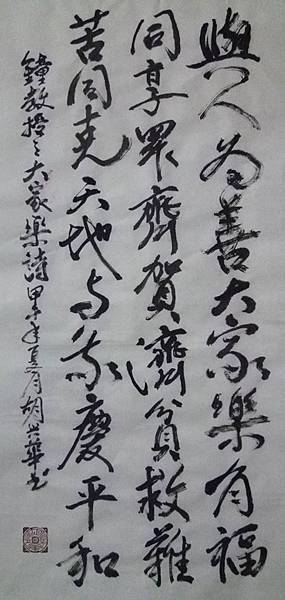 與人為善大家樂有福
同享眾齊賀濟貧救難
苦同克天地與我慶平和
鐘教授之大家樂詩甲午年夏月胡興華书